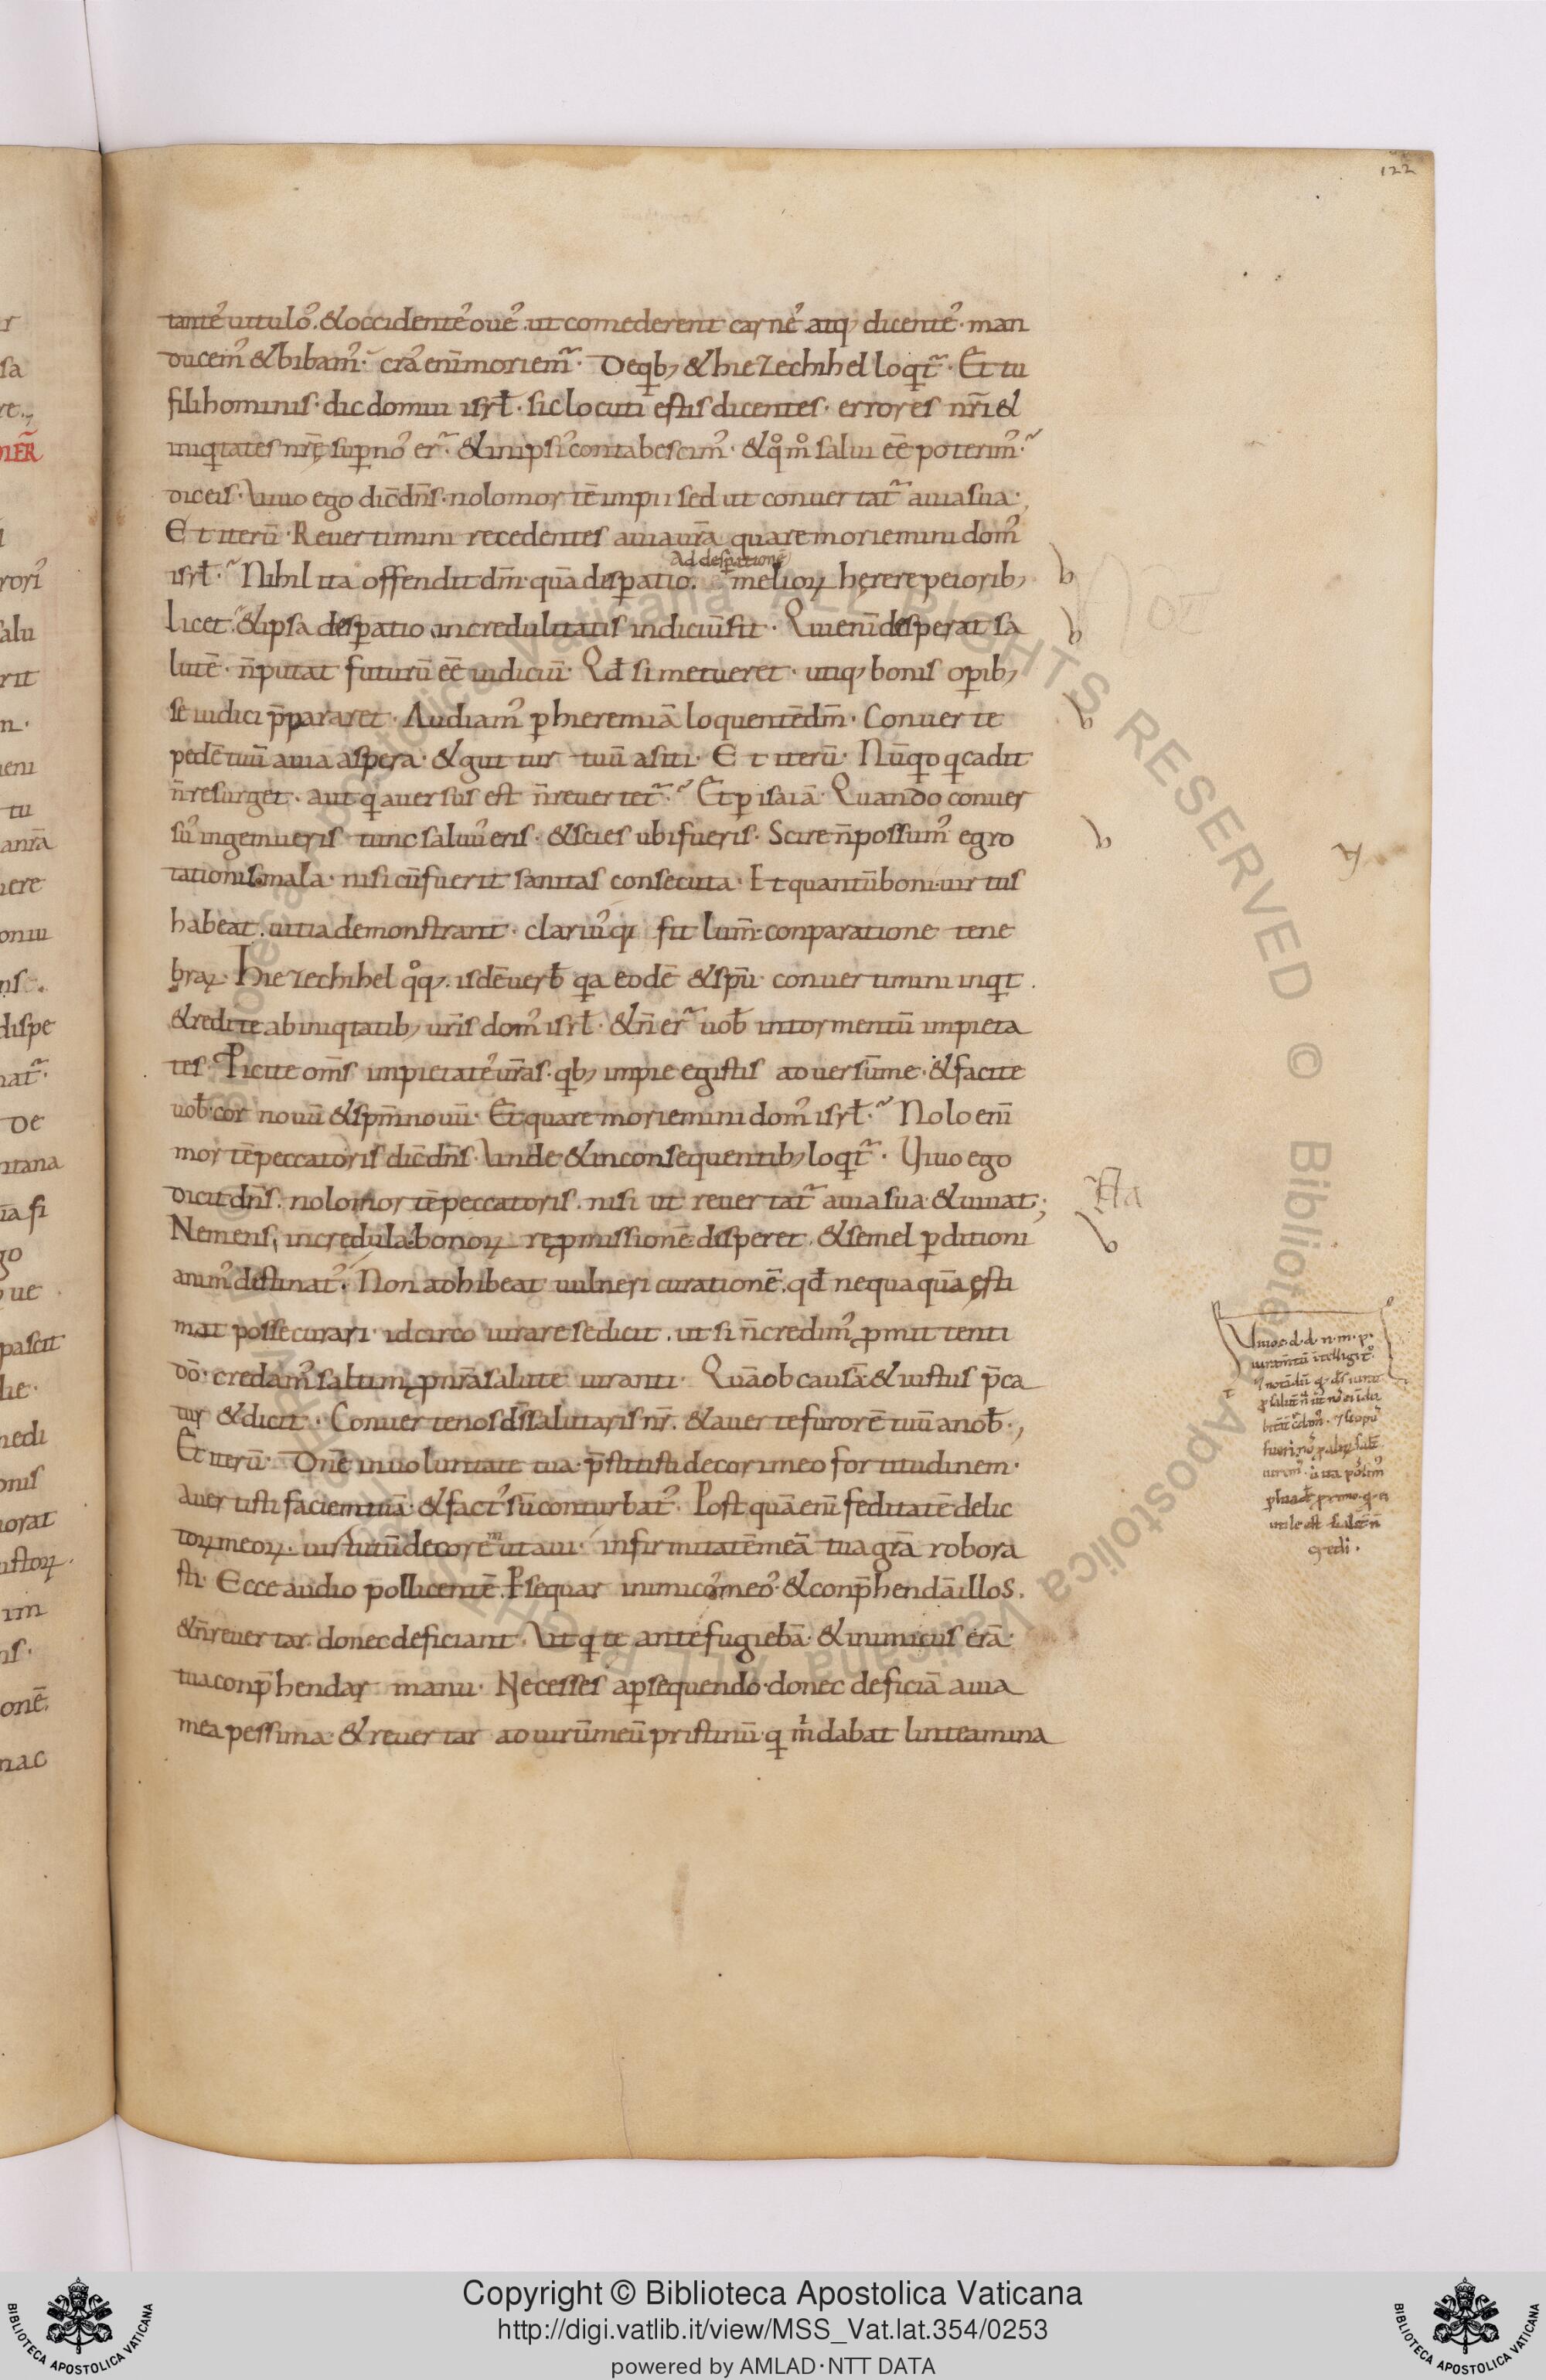 122
tante᷒ uitulo᷒. &occidente᷒ oue᷒. ut comederent carne᷒. atq; dicente᷒. man
ducem᷒ &bibam᷒. cra᷒ enī moriem̃. Deqb; & hiezechihel loqt̃. Et tu
fili hominis. dic domui isrł. sic locuti estis dicentes. errores nr̄i &
iniqtates nr̄ę suꝑ no᷒ er̃. & in ipsi᷒ contabescim᷒. & qo mo salui eē poterim᷒.
dic eis. Uiuo ego dic̄ dn̄s. nolo mortē impii sed ut conuertat̃ auia sua;
Et iterū. Reuertimini recedentes auia ur̄a quare moriemini dom᷒
isrł. Nihil ita offendit dm̄. quā desꝑatio. Ad desꝑationē melioꝝ hęrere peiorib;
licet. & ipsa desꝑatio incredulitatis indiciū sit. Qui enī desperat sa
lutē. n̄ putat futurū eē iudiciū. Qđ si metueret. utiq; bonis oꝑib;
se iudici p̄pararet. Audiam᷒ ꝑ hieremiā loquentē dm̄. Conuerte
pedē tuū auia aspera. & guttur tuū asiti. Et iterū. Nūqd q cadit
n̄ resurget. aut q auersus est n̄ reuertet̃. Et ꝑ isaiā. Quando conuer
su᷒ ingemueris tunc saluu᷒ eris. & scies ubi fueris. Scire n̄ possum᷒ egro
tationis mala. nisi cū fuerit sanitas consecuta. Et quantū boni uirtus
habeat. uitia demonstrant. clariu᷒ q; fit lum̄ conparatione tene
braꝝ. Hiezechihel qoq;. isdē uerb̄ qa eodē & sp̄u. conuertimini inqt.
& redite ab iniqtatib; ur̄is dom᷒ isrł. & n̄ er̃ uob̄ in tormentū impieta
tes. Picite om̄s impietate᷒ ur̄as. qb; impie egistis aduersū me. & facite
uob̄ cor nouū & spm̄ nouū. Et quare moriemini dom᷒ isrł. Nolo enī
mortē peccatoris dic̄ dn̄s. Unde & in consequentib; loqt̃. Uiuo ego
dicit dn̄s. nolo mortē peccatoris. nisi ut reuertat̃ auia sua & uiuat;
Ne mens incredula bonoꝝ reꝓmissionē disperet. & semel ꝑditioni
anim᷒ distinat᷒. Non adhibeat uulneri curationē. qđ nequaquā ęsti
mat posse curari. idcirco iurare se dicit. ut si n̄ credim᷒ ꝓmittenti
dō. credam᷒ saltim ꝓ nr̄a salute iuranti. Quā ob causā & iustus p̄ca
tur & dicit. Conuerte nos ds̄ salutaris nr̄. & auerte furorē tuū a nob̄;
Et iterū. Dn̄e in uoluntate tua. p̄stitisti decori meo fortitudinem.
auertisti faciem tuā. & fact᷒ sū conturbat᷒. Post quā enī feditatē delic
toꝝ meoꝝ. uirtutū decorē mutaui. infirmitatē meā tua gr̄a robora
sti. Ecce audio pollicentē. Psequar inimico᷒ meo᷒. & conp̄hendā illos.
& n̄ reuertar donec deficiant. Ut q te ante fugiebā. & inimicus erā.
tua conp̄hendar manu. Ne cesses a ꝑsequendo. donec deficiā auia
mea pessima. & reuertar ad uirū meū pristinū. q m̄ dabat linteamina
Uiuo. e. d. d. n. m. p.
Copyright © Biblioteca Apostolica Vaticana
http://digi.vatlib.it/view/MSS_Vat.lat.354/0253
powered by AMLAD·NTT DATA
BIBLIOTECA APOSTOLICA VATICANA
BIBLIOTECA APOSTOLICA VATICANA